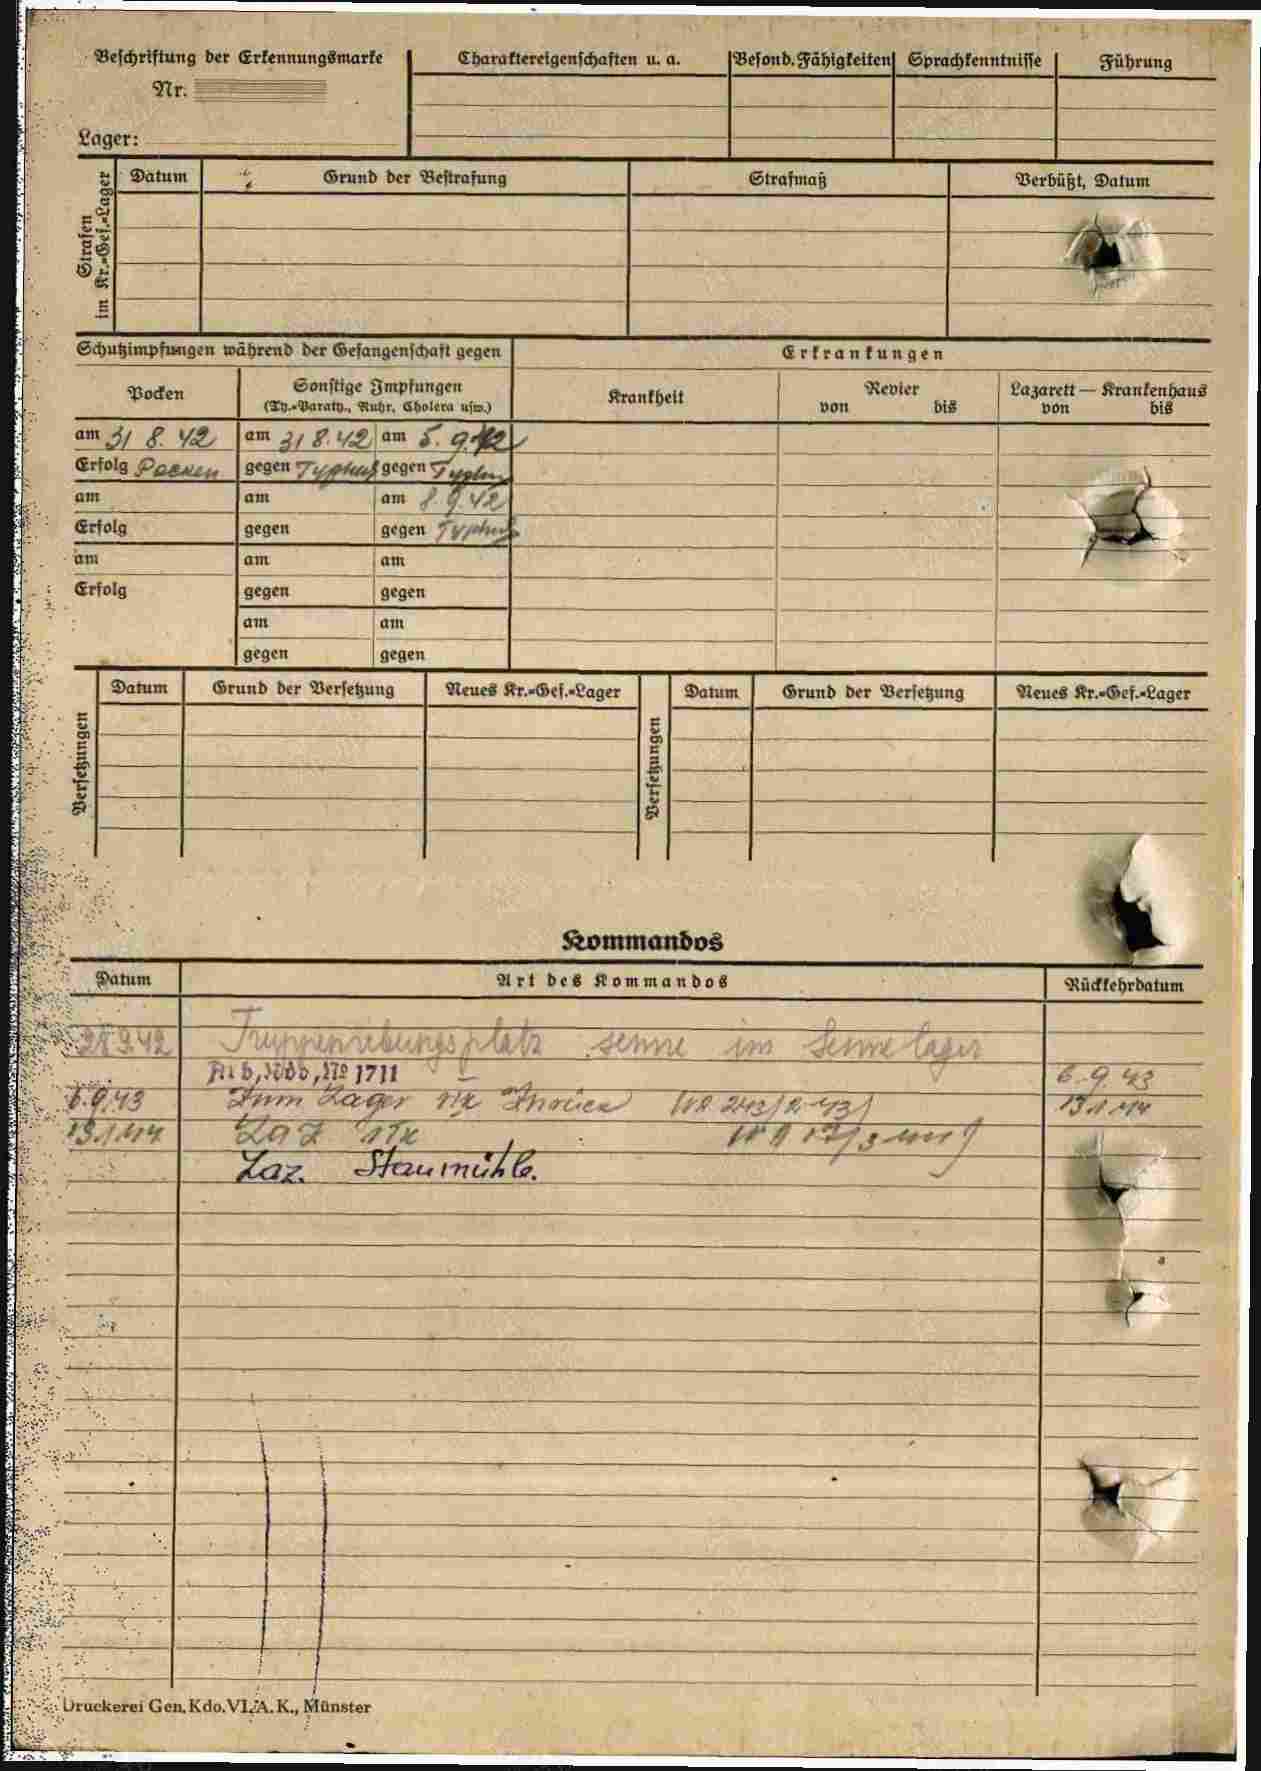 Beschriftung der Erkennungsmarke
Nr.
Lager:
Charaktereigenschaften u. a.
Besond. Fähigkeiten
Sprachkenntnisse
Führung
Strafen im Kr.=Gef.=Lager
Datum
Grund der Bestrafung
Strafmaß
Verbüßt, Datum
Schutzimpfungen während der Gefangenschaft gegen
Erkrankungen
Pocken
Sonstige Impfungen
(Ty.=Paraty., Ruhr, Cholera usw.)
Krankheit
Revier
von bis
Lazarett — Krankenhaus
von bis
am 31 8. 42 am 31 8. 42 am 5. 9. 42
Erfolg Pocken gegen Typhus gegen Typhus
am am am 8. 9. 42
Erfolg gegen gegen Typhus
am am am
Erfolg gegen gegen
am am
gegen gegen
Versetzungen
Datum Grund der Versetzung Neues Kr.=Gef.=Lager
Versetzungen
Datum Grund der Versetzung Neues Kr.=Gef.=Lager
Kommandos
Datum Art des Kommandos Rückkehrdatum
28.9.42 Truppenübungsplatz senne im Sennelager
Arb, Kdo, No 1711 6. 9. 43
6.9.43 Zum Lager zurück 13.1.44
13.1.44 Laz
Laz. Staumühle.
Druckerei Gen. Kdo. VI. A. K., Münster